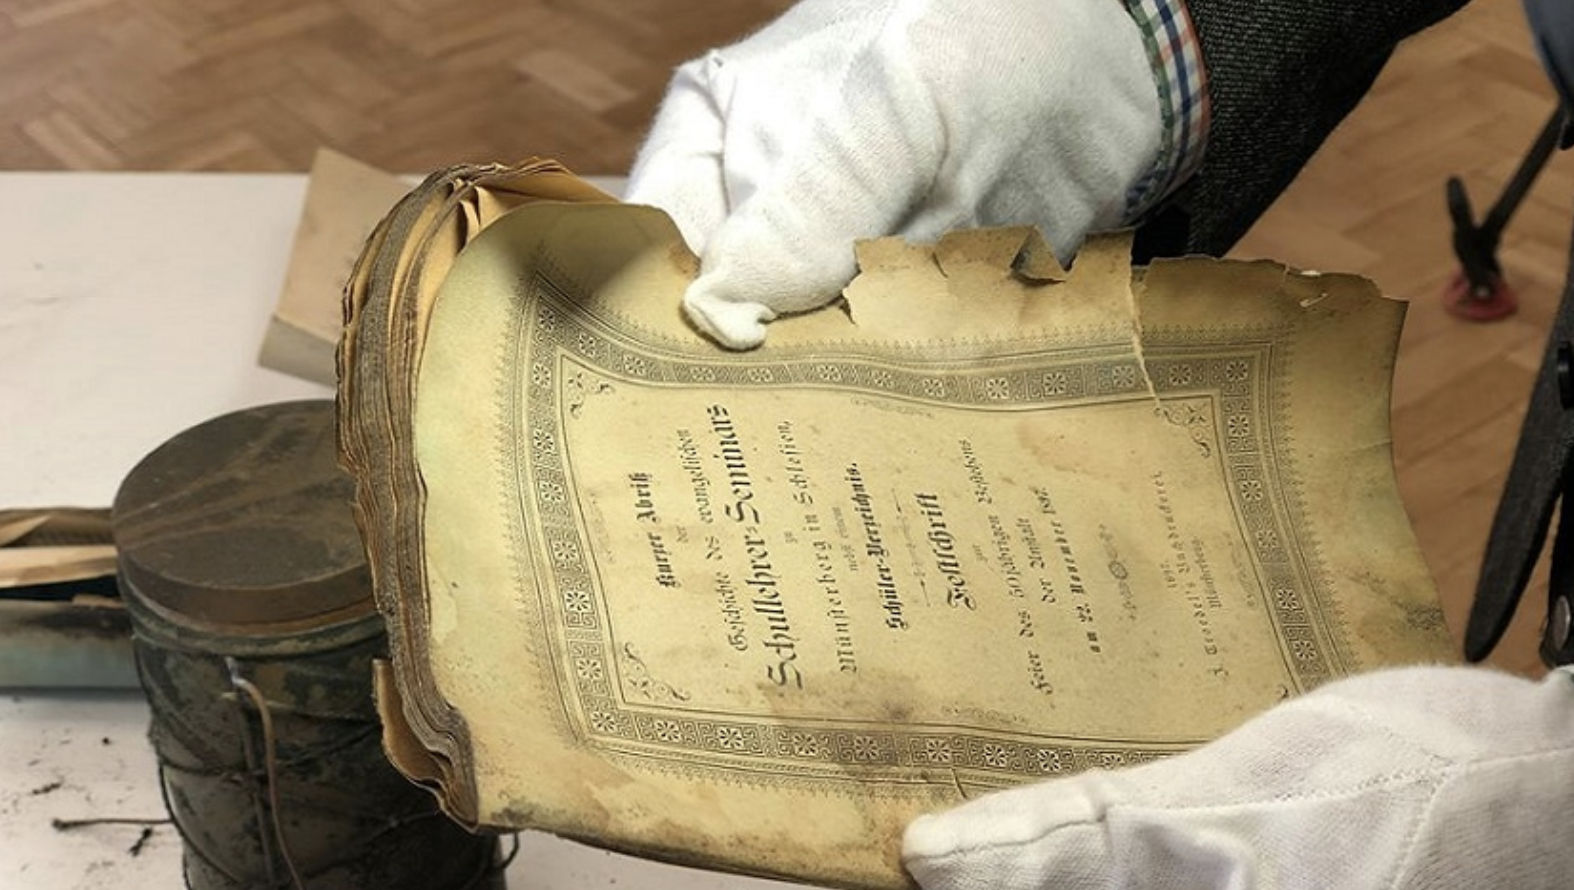 Kurzer Abriß
der
Geschichte des evangelischen
Schullehrer-Seminars
zu
Münsterberg in Schlesien,
nebst einem
Schüler-Verzeichnis.
Festschrift
zur
Feier des 50jährigen Bestehens
der Anstalt
am 22. November 1897.
1897.
J. Troedel's Buchdruckerei,
Münsterberg.